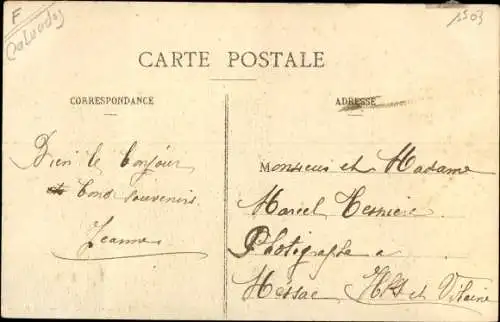 F
Calvados
1503
CARTE POSTALE
CORRESPONDANCE
ADRESSE
Bien le bonjour
et bons souvenirs
Jeanne
Monsieur et Madame
Marcel
Photographe a
Messac Ille et Vilaine